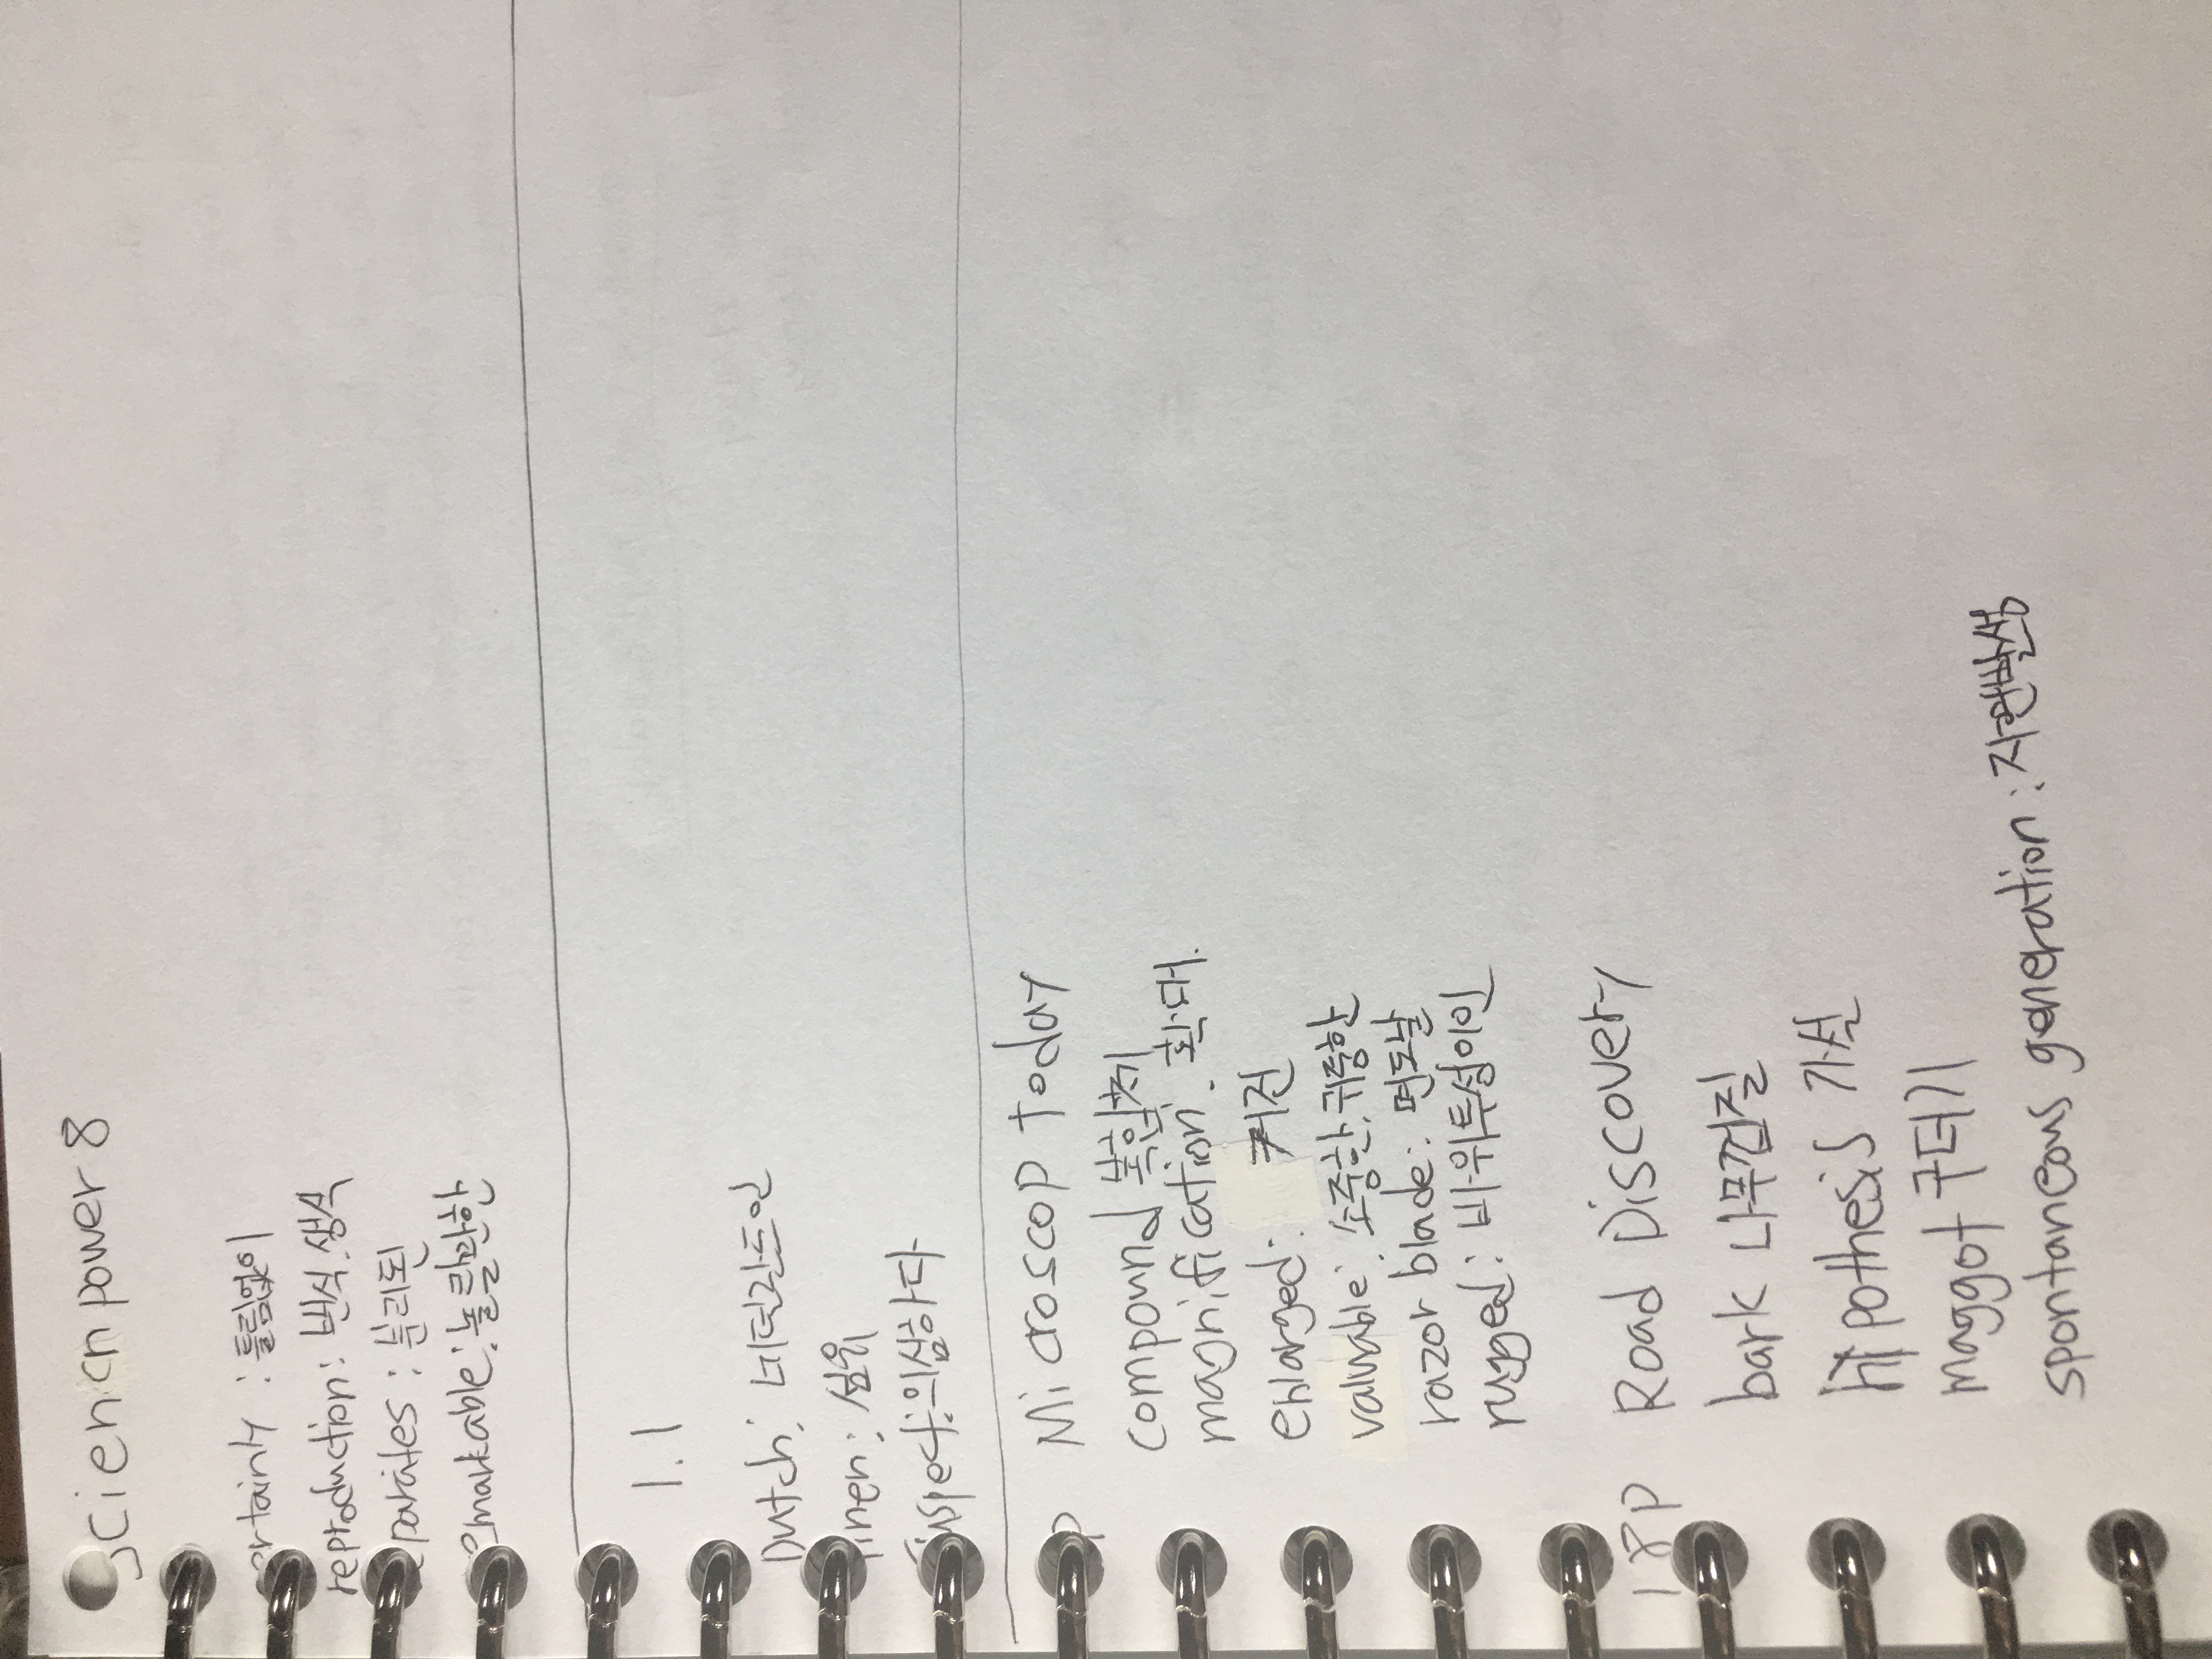 sciencn power 8
ertainly : 틀림없이
reproduction : 번식. 생식
eparates : 분리된
emarkable : 놀랄만한
1.1
Dutch : 네덜란드인
inen : 섬유
suspect : 의심하다
p Microscop today
compound 복합체
magnification. 확대.
enlarged : 커진
valuable : 소중한, 귀중한
razor blade : 면도날
rugged : 바위투성이인
18P Road Discovery
bark 나무껍질
hypothesis 가설
maggot 구더기
spontaneous generation : 자연발생